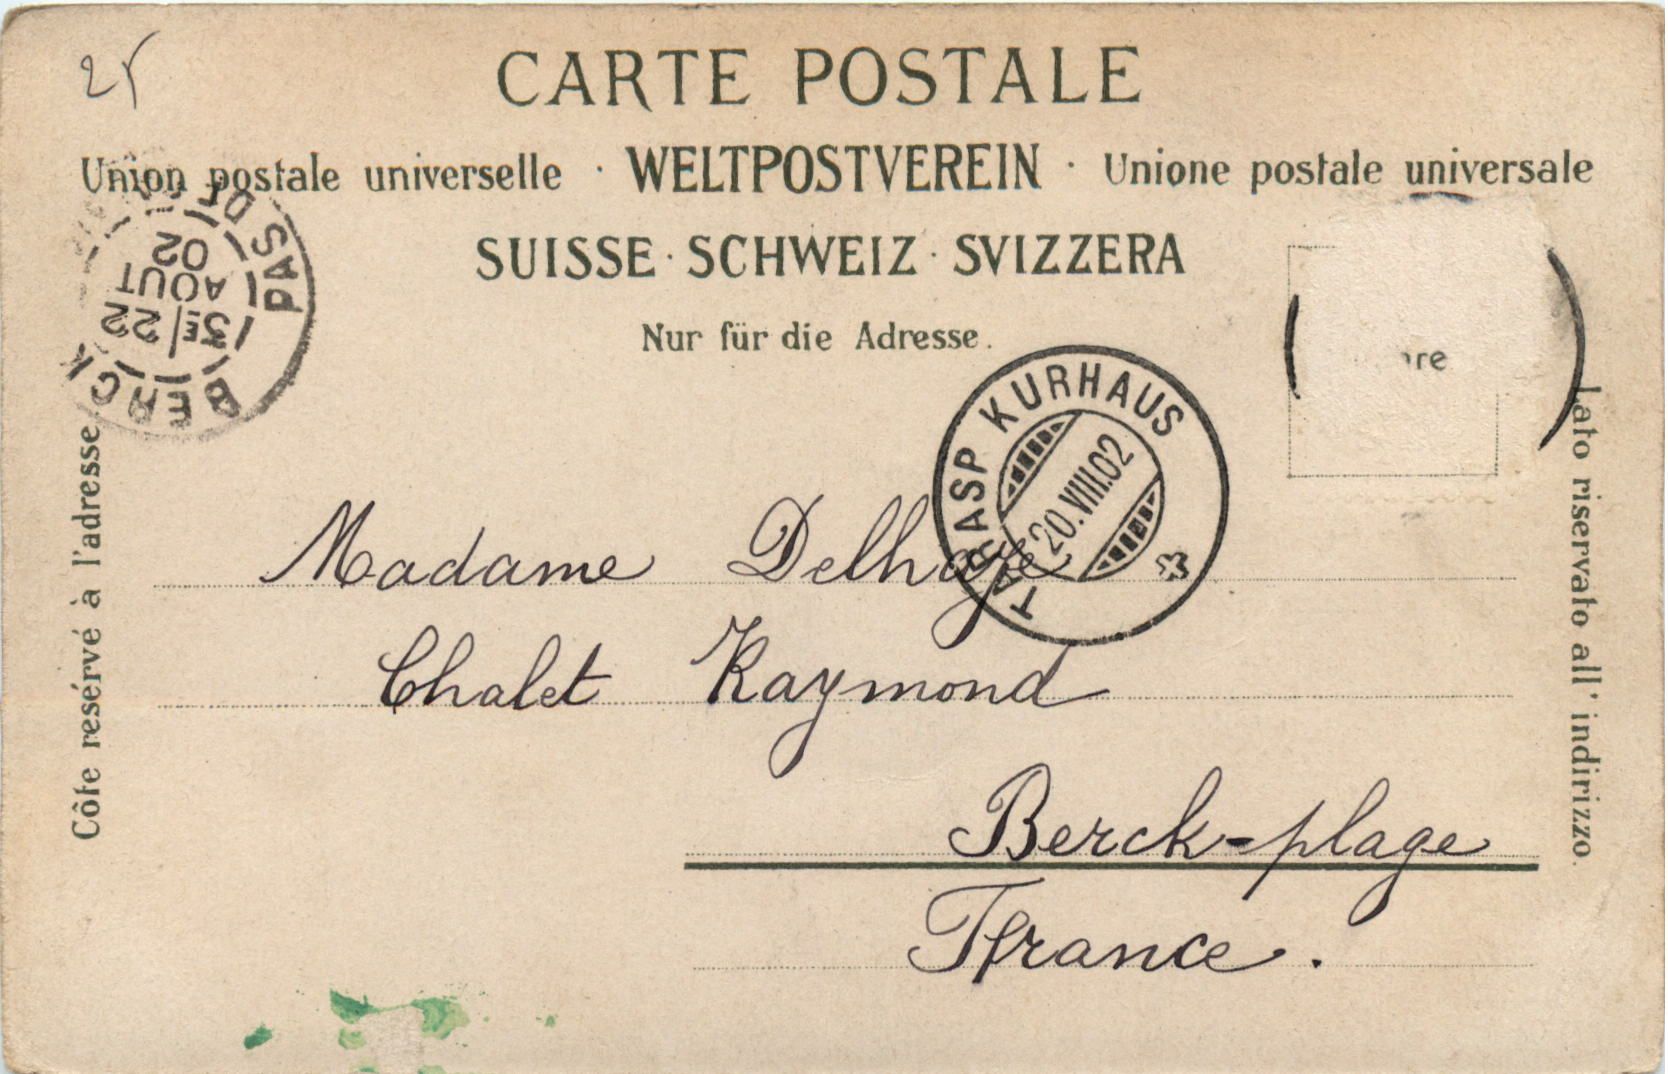 25
CARTE POSTALE
Union postale universelle · WELTPOSTVEREIN · Unione postale universale
SUISSE · SCHWEIZ · SVIZZERA
Nur für die Adresse.
BERCK PAS DE
3E/22
AOUT
02
TARASP KURHAUS
20.VIII.02
Côte resérvé à l'adresse
lato riservato all' indirizzo.
Madame Delhaye
Chalet Raymond
Berck-plage
France.